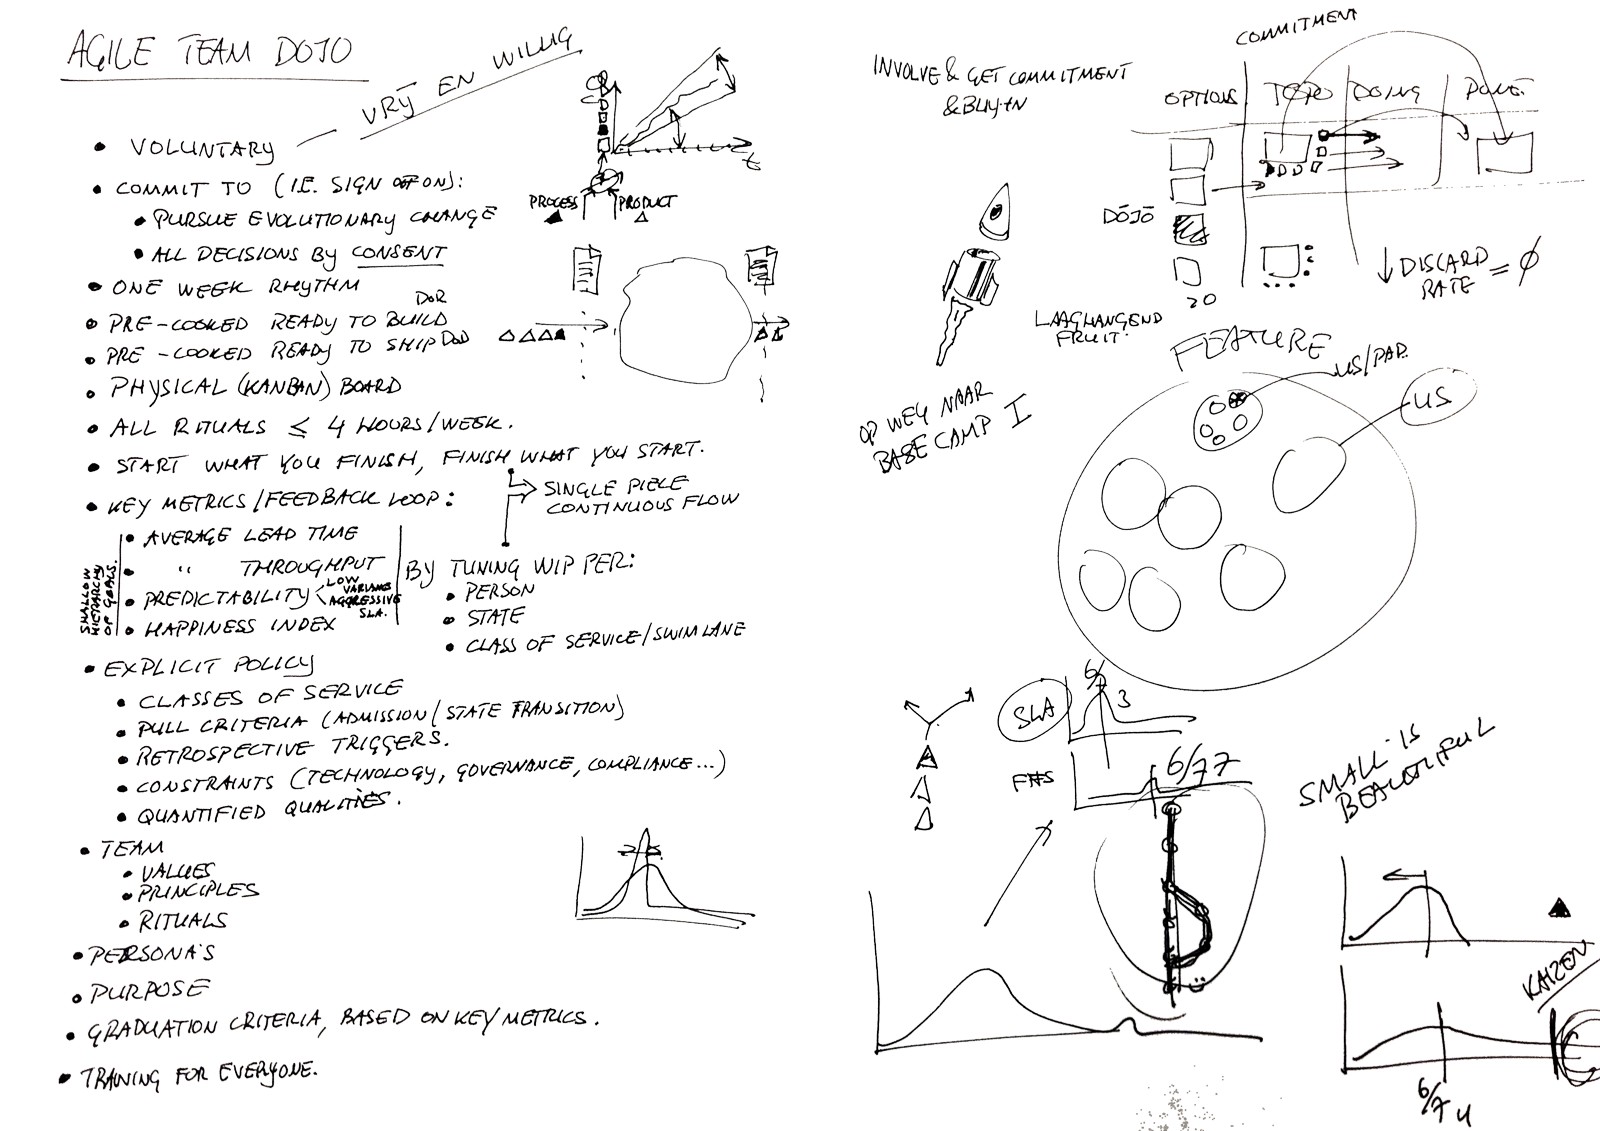 AGILE TEAM DOJO
VRIJ EN WILLIG
• VOLUNTARY
• COMMIT TO (I.E. SIGN OFF ON):
• PURSUE EVOLUTIONARY CHANGE
• ALL DECISIONS BY CONSENT
• ONE WEEK RHYTHM
DOR
• PRE-COOKED READY TO BUILD
• PRE-COOKED READY TO SHIP DOD
• PHYSICAL (KANBAN) BOARD
• ALL RITUALS ≤ 4 HOURS/WEEK.
• START WHAT YOU FINISH, FINISH WHAT YOU START.
SINGLE PIECE
CONTINUOUS FLOW
• KEY METRICS/FEEDBACK LOOP:
SHALLOW
HIERARCHY
OF GOALS.
• AVERAGE LEAD TIME
• " THROUGHPUT
• PREDICTABILITY
LOW
VARIANCE
AGGRESSIVE
SLA.
• HAPPINESS INDEX
BY TUNING WIP PER:
• PERSON
• STATE
• CLASS OF SERVICE/SWIMLANE
• EXPLICIT POLICY
• CLASSES OF SERVICE
• PULL CRITERIA (ADMISSION/STATE TRANSITION)
• RETROSPECTIVE TRIGGERS.
• CONSTRAINTS (TECHNOLOGY, GOVERNANCE, COMPLIANCE...)
• QUANTIFIED QUALITIES.
• TEAM
• VALUES
• PRINCIPLES
• RITUALS
• PERSONA'S
• PURPOSE
• GRADUATION CRITERIA, BASED ON KEY METRICS.
• TRAINING FOR EVERYONE.
t
PROCESS
PRODUCT
INVOLVE & GET COMMITMENT
& BUY-IN
COMMITMENT
OPTIONS
TODO
DOING
DONE
DŌJŌ
20
↓ DISCARD
RATE = Ø
LAAGHANGEND
FRUIT.
OP WEG NAAR
BASE CAMP I
FEATURE
US/PAD.
US
SLA
6/
3
6/77
SMALL IS
BEAUTIFUL
KAIZEN
6/7 4